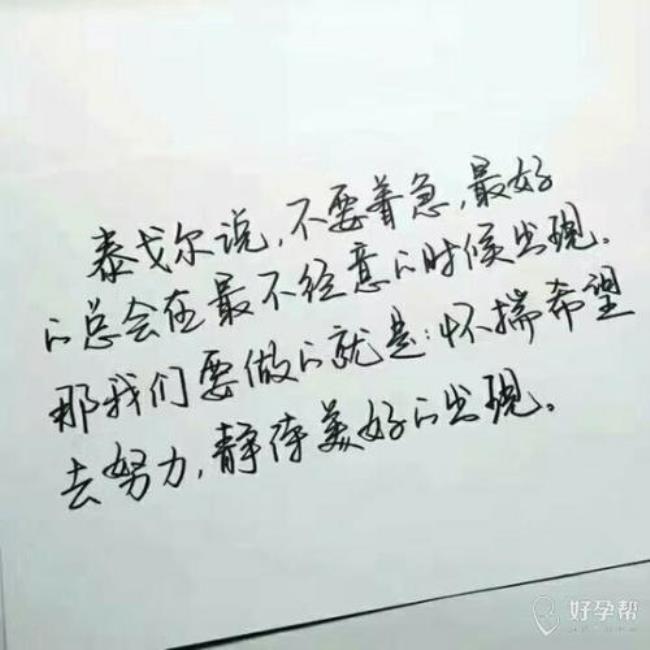 泰戈尔说,不要着急,最好
的总会在最不经意的时候出现。
那我们要做的就是:怀揣希望
去努力,静待美好的出现。
好孕帮